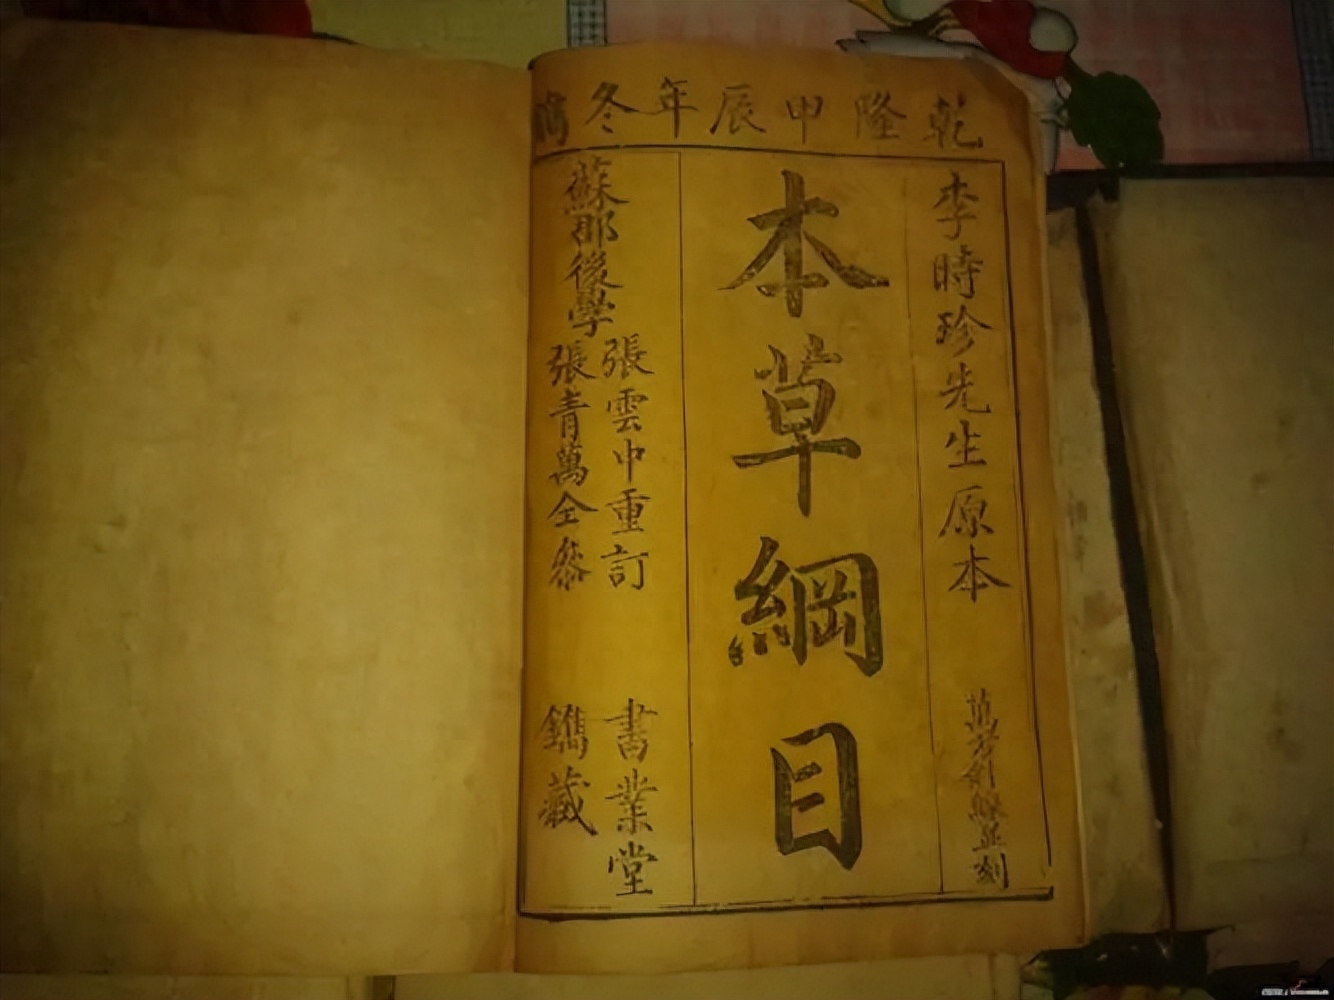 乾隆甲辰年冬鐫
李時珍先生原本
萬方針線並刻
本草綱目
蘇郡後學
張雲中重訂
張青萬全叅
書業堂
鐫藏